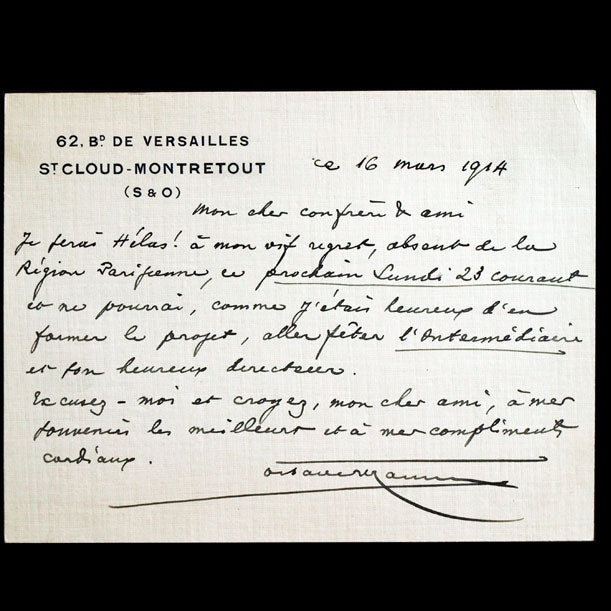 62, Bᴅ DE VERSAILLES
Sᵀ CLOUD-MONTRETOUT
(S & O)
ce 16 mars 1914
Mon cher confrère & ami
Je serai Hélas! à mon vif regret, absent de la
Région Parisienne, ce prochain Lundi 23 courant
et ne pourrai, comme j'étais heureux d'en
former le projet, aller fêter l'Intermédiaire
et son heureux directeur.
Excusez-moi et croyez, mon cher ami, à mes
souvenirs les meilleurs et à mes compliments
cordiaux.
Octave Uzanne